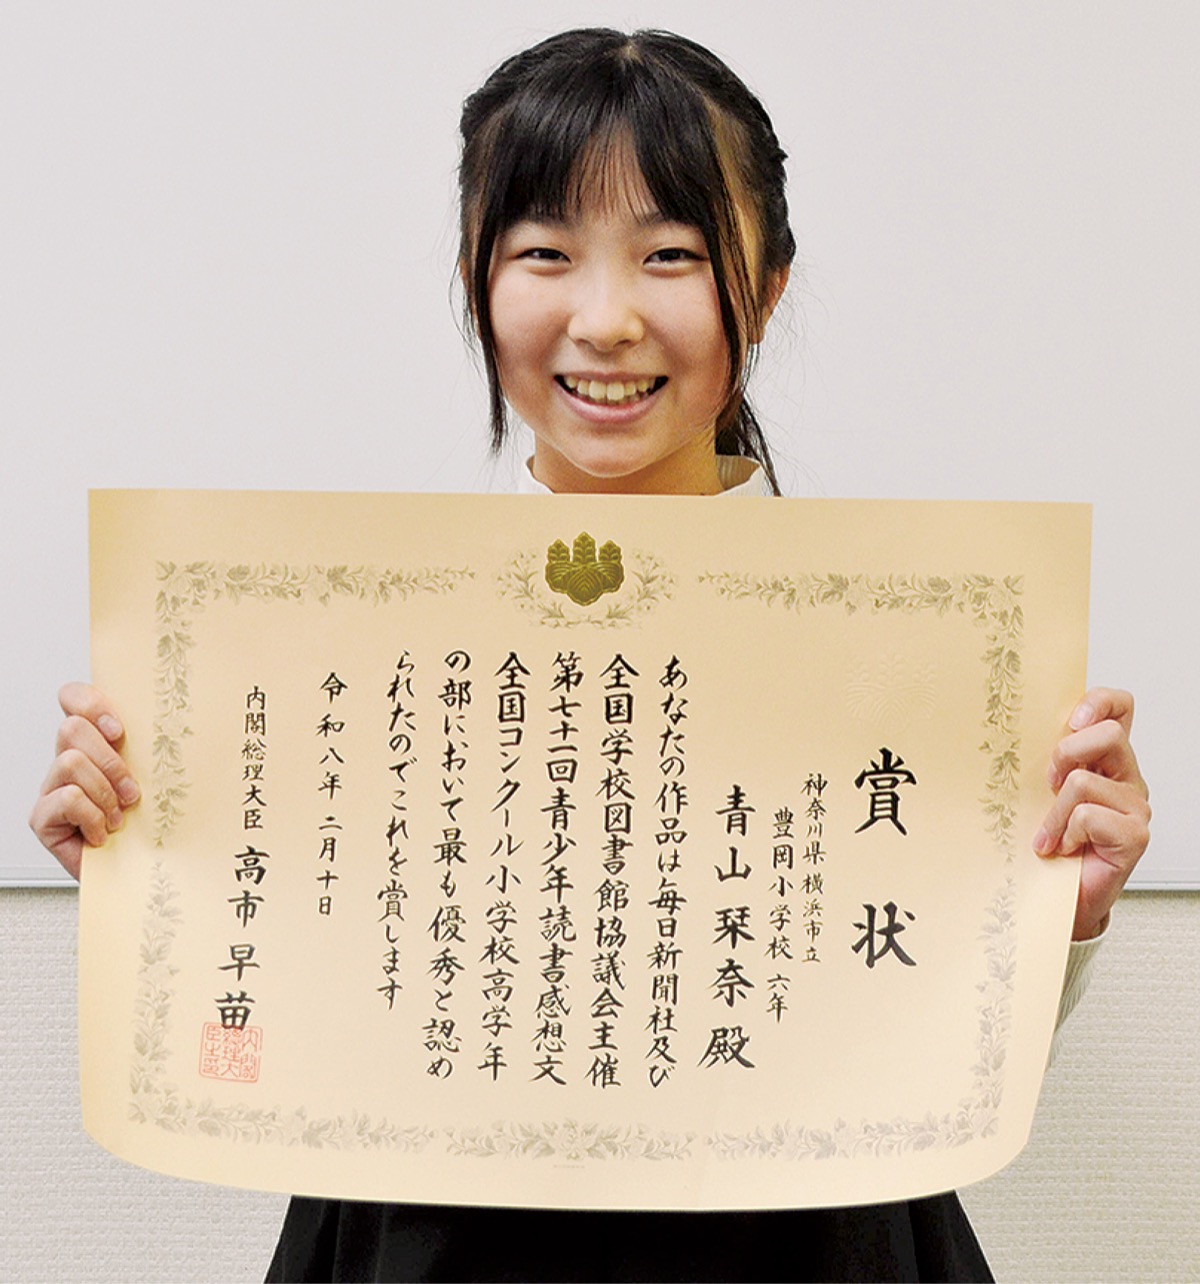 賞状
神奈川県横浜市立
豊岡小学校六年
青山栞奈殿
あなたの作品は毎日新聞社及び
全国学校図書館協議会主催
第七十一回青少年読書感想文
全国コンクール小学校高学年
の部において最も優秀と認め
られたのでこれを賞します
令和八年二月十日
内閣総理大臣 高市早苗